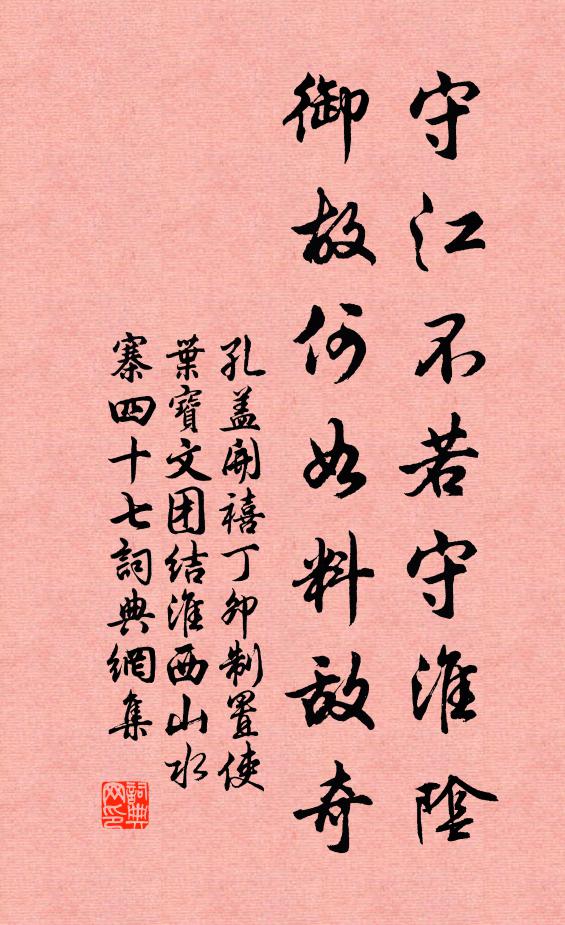 守江不若守淮陰
御敌何如料敌奇
孔盖開禧丁卯制置使
葉寶文团结淮西山水
寨四十七詞典網集
詞典
网印